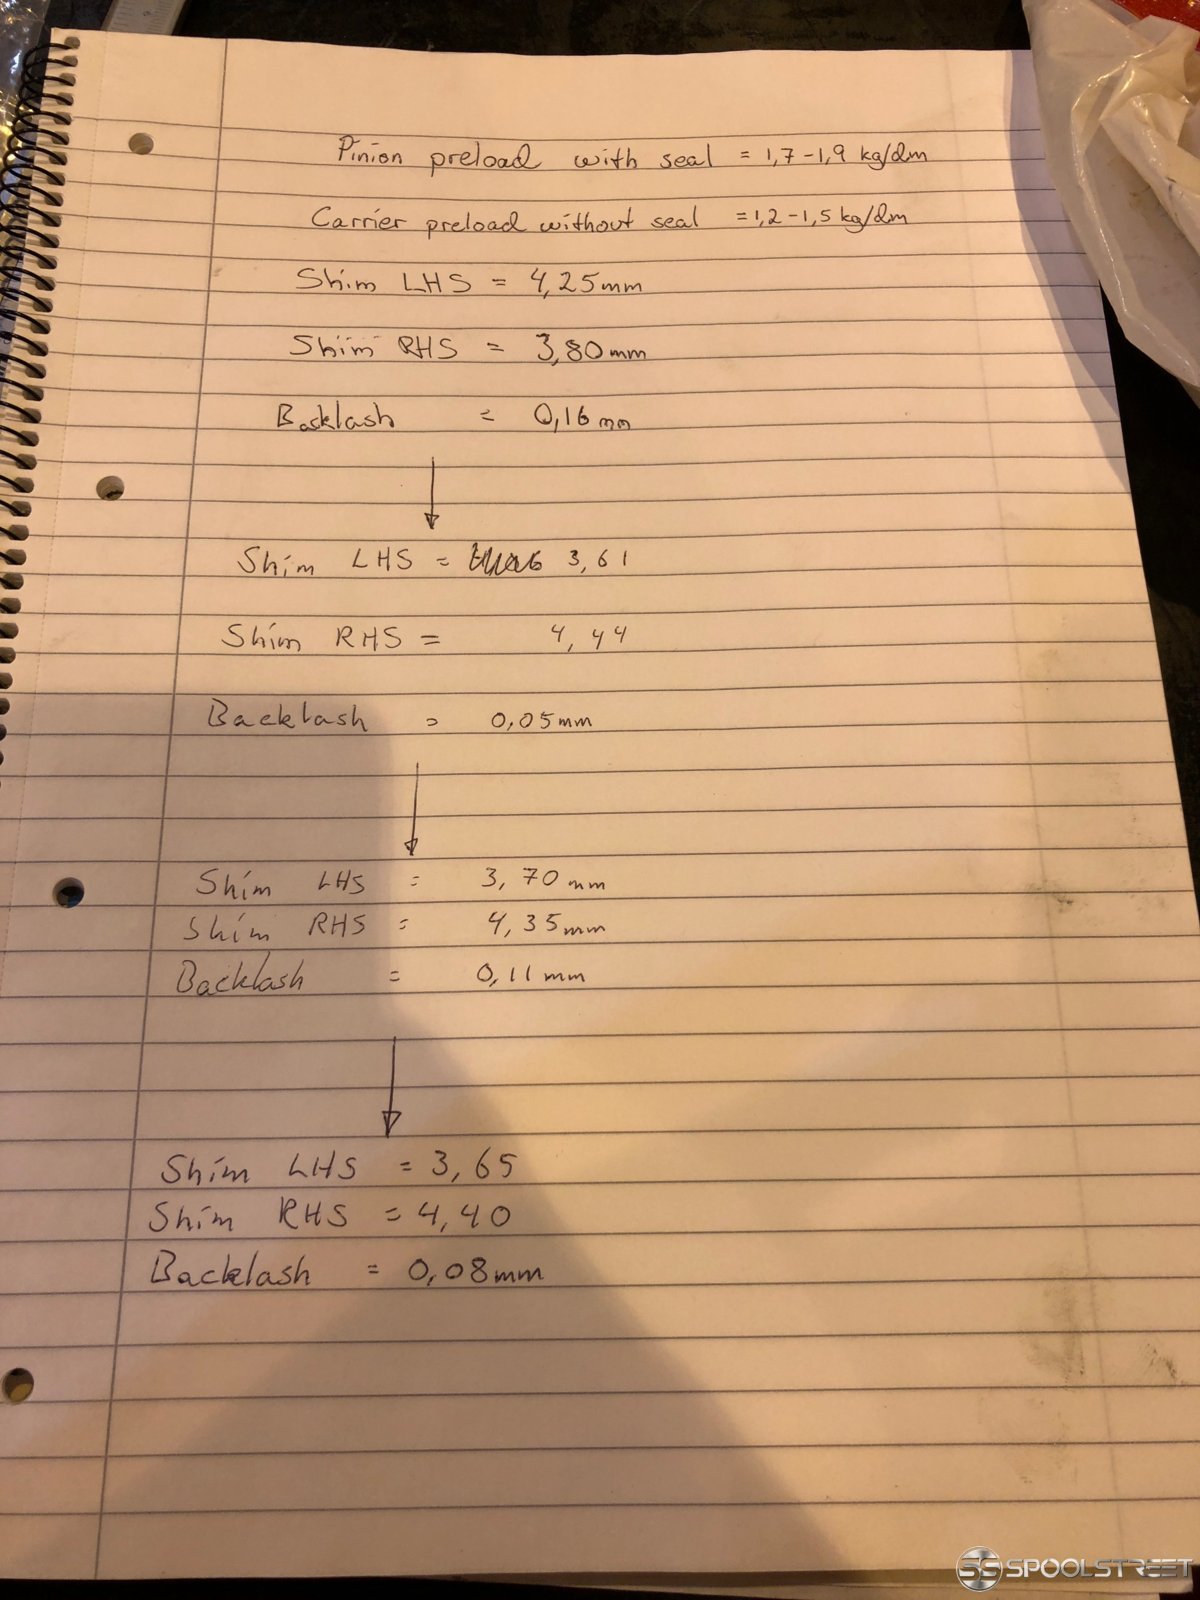 Pinion preload with seal = 1,7-1,9 kg/dm
Carrier preload without seal = 1,2-1,5 kg/dm
Shim LHS = 4,25mm
Shim RHS = 3,80mm
Backlash = 0,16mm
Shim LHS = 3,61
Shim RHS = 4,44
Backlash = 0,05mm
Shim LHS = 3,70mm
Shim RHS = 4,35mm
Backlash = 0,11mm
Shim LHS = 3,65
Shim RHS = 4,40
Backlash = 0,08mm
SPOOLSTREET